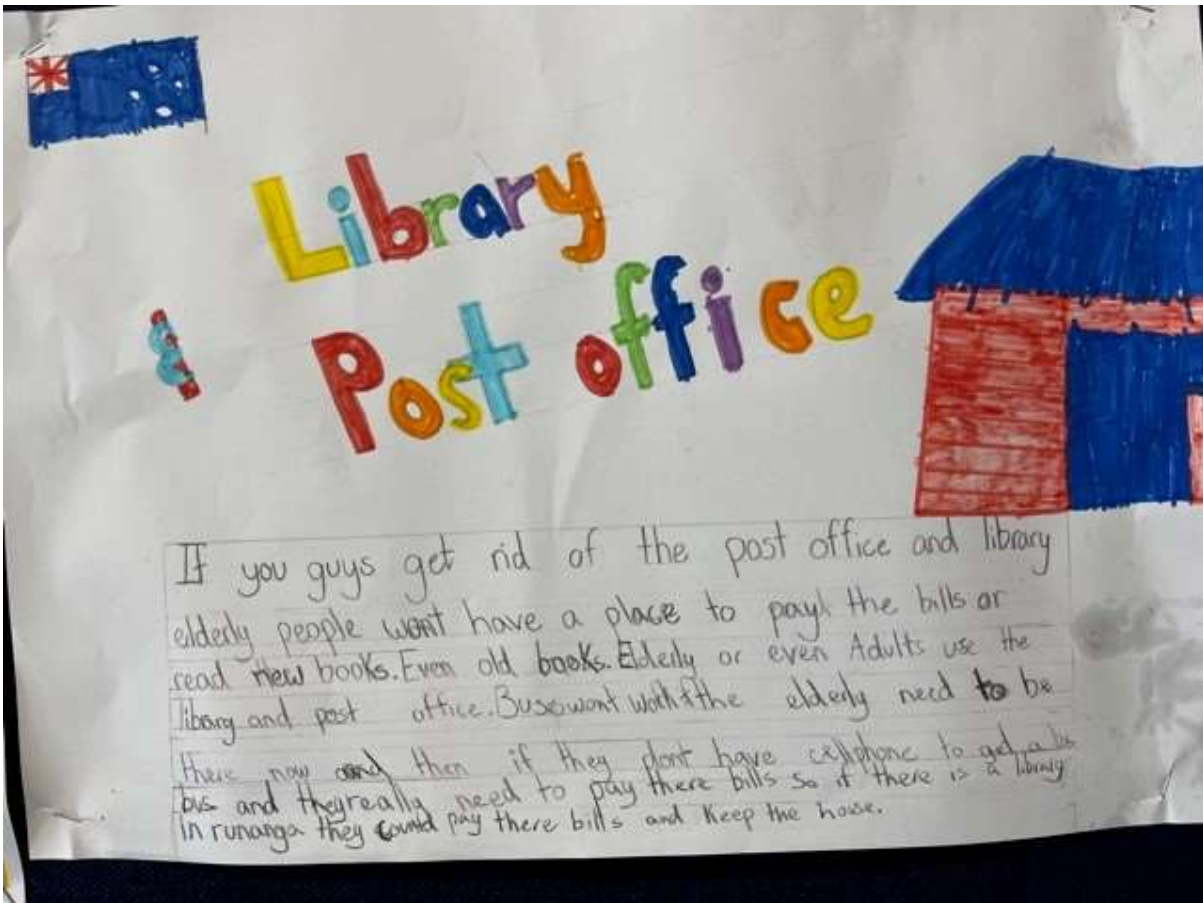 Library
& Post office
If you guys get rid of the post office and library
elderly people wont have a place to pay the bills or
read new books. Even old books. Elderly or even Adults use the
library and post office. Buse wont work if the elderly need to be
there now and then if they dont have cellphone to get a
bus and they really need to pay there bills so if there is a library
in runanga they could pay there bills and keep the house.